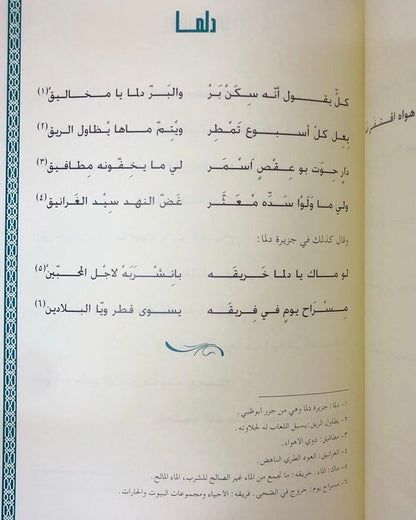 دلمـا
كلٍّ يقـــول أنّه سِكَنْ بَرْ والبَـرّ دلما يا مخـاليـق(١)
يعل كلّ أسبــوع تَمْطر ويْتمّ ماها يْظاول الريق(٢)
دارٍ حِوَت بو عِقْصٍ اَسْمَـر لي ما يخفّونه مطافيق(٣)
ولي ما ولَوْا سَدّه مْعَثَّـر غَضّ النهد سيْد الغَرانيق(٤)
وقال كذلك في جزيرة دلما:
لو ماك يا دلما خَريقَـه بانِشْـرَبَهْ لاجْل المحبّين(٥)
مِسْـرَاح يومٍ في فريقَـه يسوى قطر ويّا البلادين(٦)
هواه
١- دلما: جزيرة دلما وهي من جزر أبوظبي.
٢- يظاول الريق: يسيل اللعاب له لحلاوته.
٣- مطافيق: ذوي الاهواء.
٤- الغرانيق: العود الطري الناهض.
٥- ماك: الماء. خريقه: ما تجمع من الماء غير الصالح للشرب، الماء المالح.
٦- مسراح يوم: خروج في الضحى. فريقه: الاحياء ومجموعات البيوت والحارات.